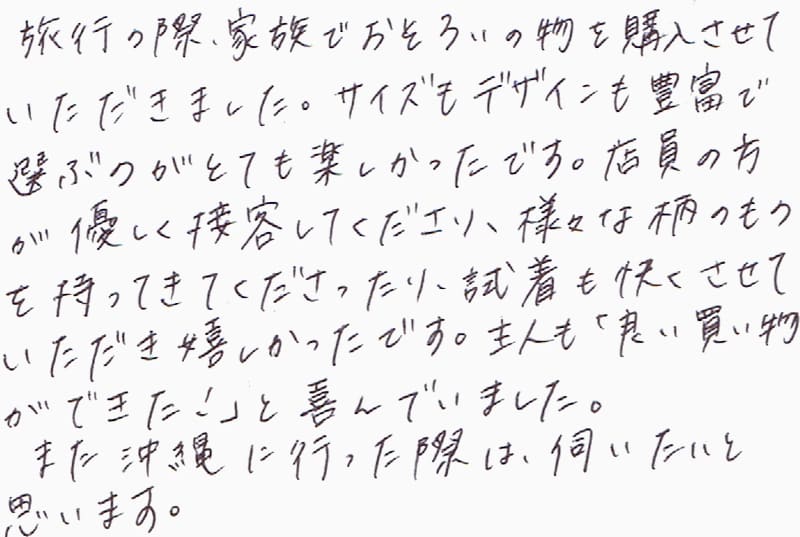 旅行の際、家族でおそろいの物を購入させて
いただきました。サイズもデザインも豊富で
選ぶのがとても楽しかったです。店員の方
が優しく接客してくださり、様々な柄のもの
を持ってきてくださったり、試着も快くさせて
いただき嬉しかったです。主人も「良い買い物
ができた！」と喜んでいました。
また沖縄に行った際は、伺いたいと
思います。